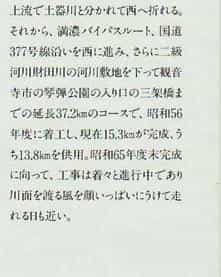 上流で土器川と分かれて西へ折れる。
それから、満濃バイパスルート、国道
377号線沿いを西に進み、さらに二級
河川財田川の河川敷地を下って観音
寺市の琴弾公園の入り口の三架橋ま
での延長37.2kmのコースで、昭和56
年度に着工し、現在15.3kmが完成、う
ち13.8kmを供用。昭和65年度末完成
に向って、工事は着々と進行中であり
川面を渡る風を顔いっぱいにうけて走
れる日も近い。